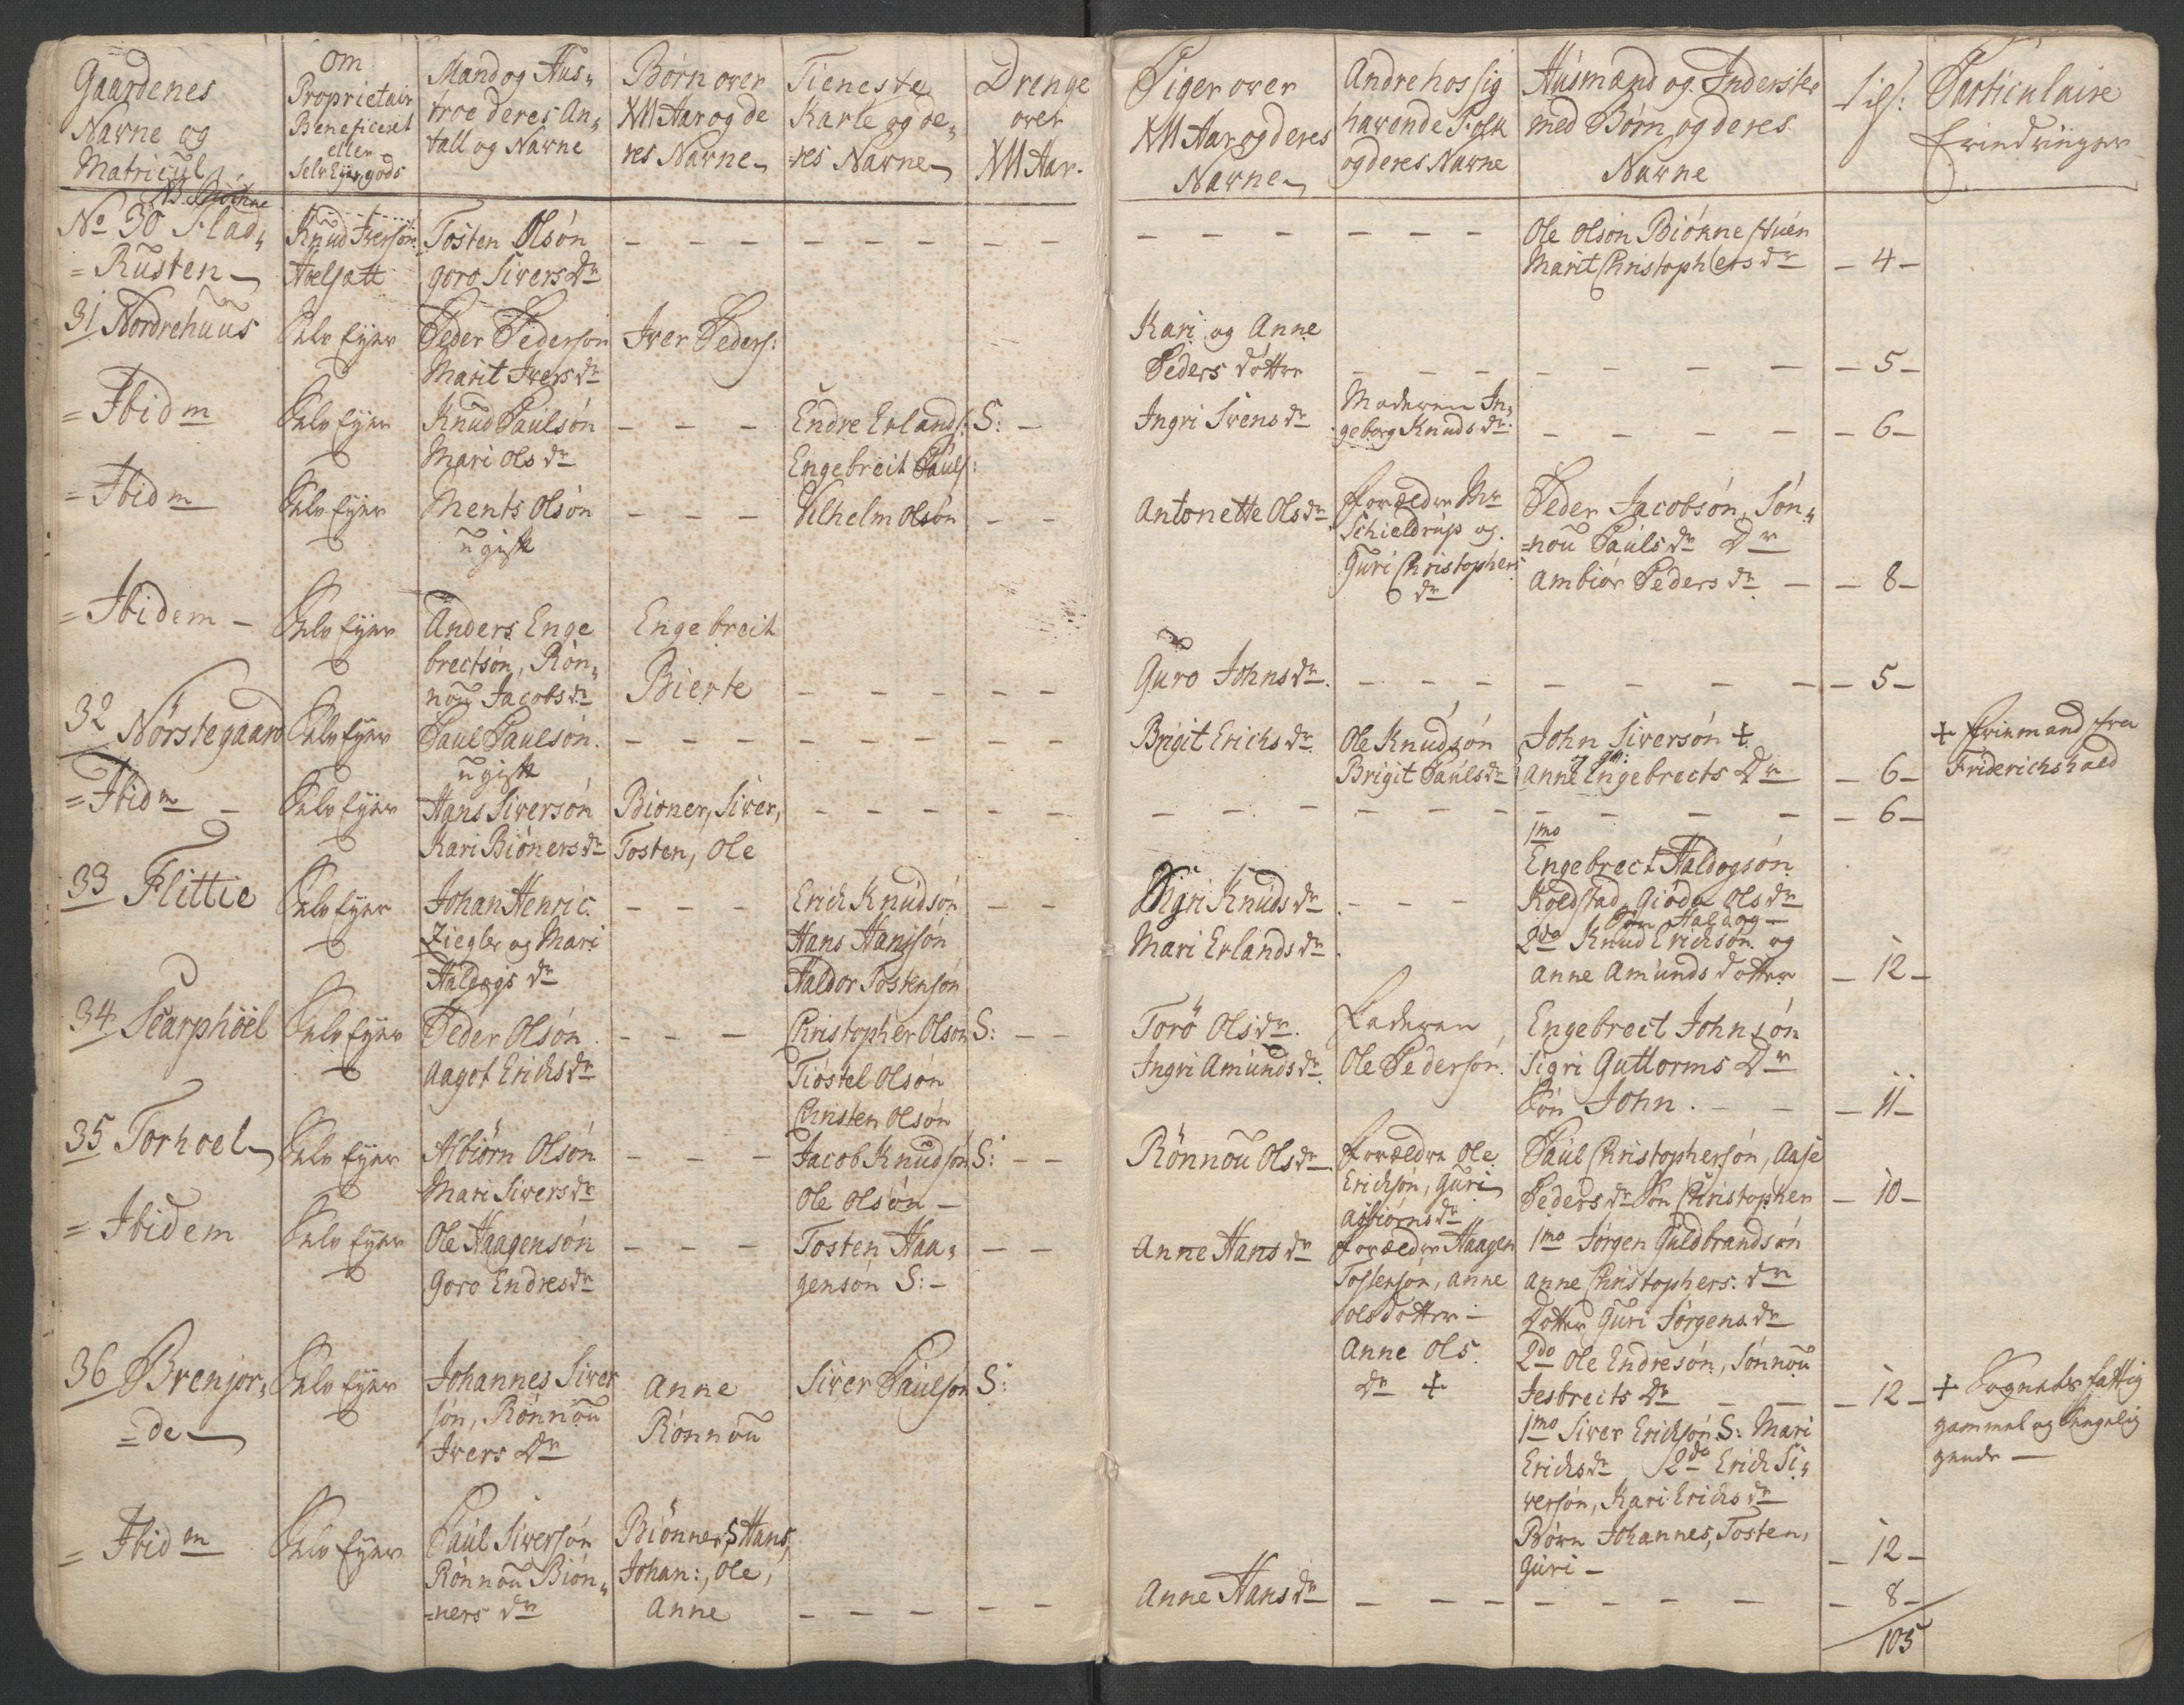 Gaardenes
Navne og
Matricul
om
Proprietair
Beneficeret
eller
Selv Eyer gods
Mand og Hus,,
troe deres An,,
tall og Navne
Børn over
XII Aar og de
res Navne
Tieneste
Karle og de,,
=res Navne
Drenge
over
XII Aar.
Piger over
XII Aar og deres
Navne
Andre hos sig
havende Folk
og deres Navne
Husmænd og Inderster
med Børn og deres
Navne
Particulaire
Erindringer
No 30 Flad,,
= Rusten
Knud Iversøn
Tosten Olsøn
goro Sivers Dr
Ole Olsøn Biøkne stuen
Marit Christophers dr
- 4 -
31 Nordrehuus
Selv Eyer
Peder Pedersøn
Marit Ivers dr
Iver Peders:
Kari og Anne
Peders døtter
- 5 -
= Ibidm
Selv Eyer
Knud Paulsøn
Mari Ols dr
Endre Erlands: S: -
Engebreit Pauls:
Ingri Svens dr
Moderen In,,
geborg Knuds dr.
- 6 -
= Ibidm
Selv Eyer
Ments Olsøn
ugift
Vilhelm Olsøn
Antonette Ols dr
Forælder Mr
Schieldrup og
Guri Christophers
dr
Peder Jacobsøn, Søn,,
=nou Pauls dr Dr
Ambiør Peders dr
- 8 -
= Ibidem -
Selv Eyer
Anders Enge
brectsøn, Røn,,
nou Jacobs dr
Engebreit
Bierte
Guro Johns dr.
- 5 -
32 Nørstegaard
Selv Eyer
Paul Paulsøn.
ugift
Brigit Erichs dr
Ole Knudsøn
Brigit Pauls dr
John Siversøn +
Anne Engebrects Dr
- 6 -
+ Friemand fra
Friderichshald
= Ibidm -
Selv Eyer
Hans Siversøn
Kari Biøners dr
Bioner, Siver,
Tosten, Ole
- 6 -
33 Flittie
Selv Eyer
Johan Henric
Ziegler og Mari
Haldogs dr
Erich Knudsøn
Hans Hansøn
Haldor Tostensøn
Sigri Knuds dr
Mari Erlands dr
1mo
Engebrect Haldogsøn
Koldstad, Giøda Ols dr
Søn Haldog -
2do Knud Erichsøn og
Anne Amunds dotter
- 12 -
34 Scarphöel
Selv Eyer
Peder Olsøn
Aagot Erichs dr
Christopher Olsøn S:
Tiøstel Olsøn
Christen Olsøn
Torö Ols dr.
Ingri Amunds dr
Faderen
Ole Pedersøn.
Engebrect Johnsøn
Sigri Guttorms Dr
Søn John.
- 11 -
35 Torhoel
Selv Eyer
Asbiørn Olsøn
Mari Sivers dr
Jacob Knudsøn S:
Ole Olsøn -
Rönnou Ols dr
Forældre Ole
Erichsøn, Guri
Asbiørns dr
Paul Christophersøn, Aase
Peders dr Søn Christopher
- 10 -
= Ibidem
Selv Eyer
Ole Haagensøn
Goro Endres dr
Tosten Haa,,
gensøn S: -
Anne Hans dr
Forælder Haagen
Tostensøn, Anne
Olsdotter -
1mo Jørgen Guldbrandsøn
Anne Christophers: dr
Dotter Guri Jørgens dr
2do Ole Endresøn, Sønnou
Jesbreits dr
- 12 -
36 Brenjor,,
= de
Selv Eyer
Johannes Siver
søn, Rønnou
Ivers Dr
Anne
Rønnou
Siver Paulsøn S:
Anne Ols
Dr +
1mo Siver Erichsøn S: Mari
Erichs dr 2do Erich Si,,
versøn, Kari Erichs dr
Børn Johannes, Tosten,
Guri -
- 12 -
+ Sognets fattig
gammel og Sengelig
gende -
= Ibidm
Selv Eyer
Paul Siversøn
Rønnou Biøn,,
=ners dr
Biönner, S Hans,
Johan:, Ole,
Anne
Anne Hans dr
- 8 -
105